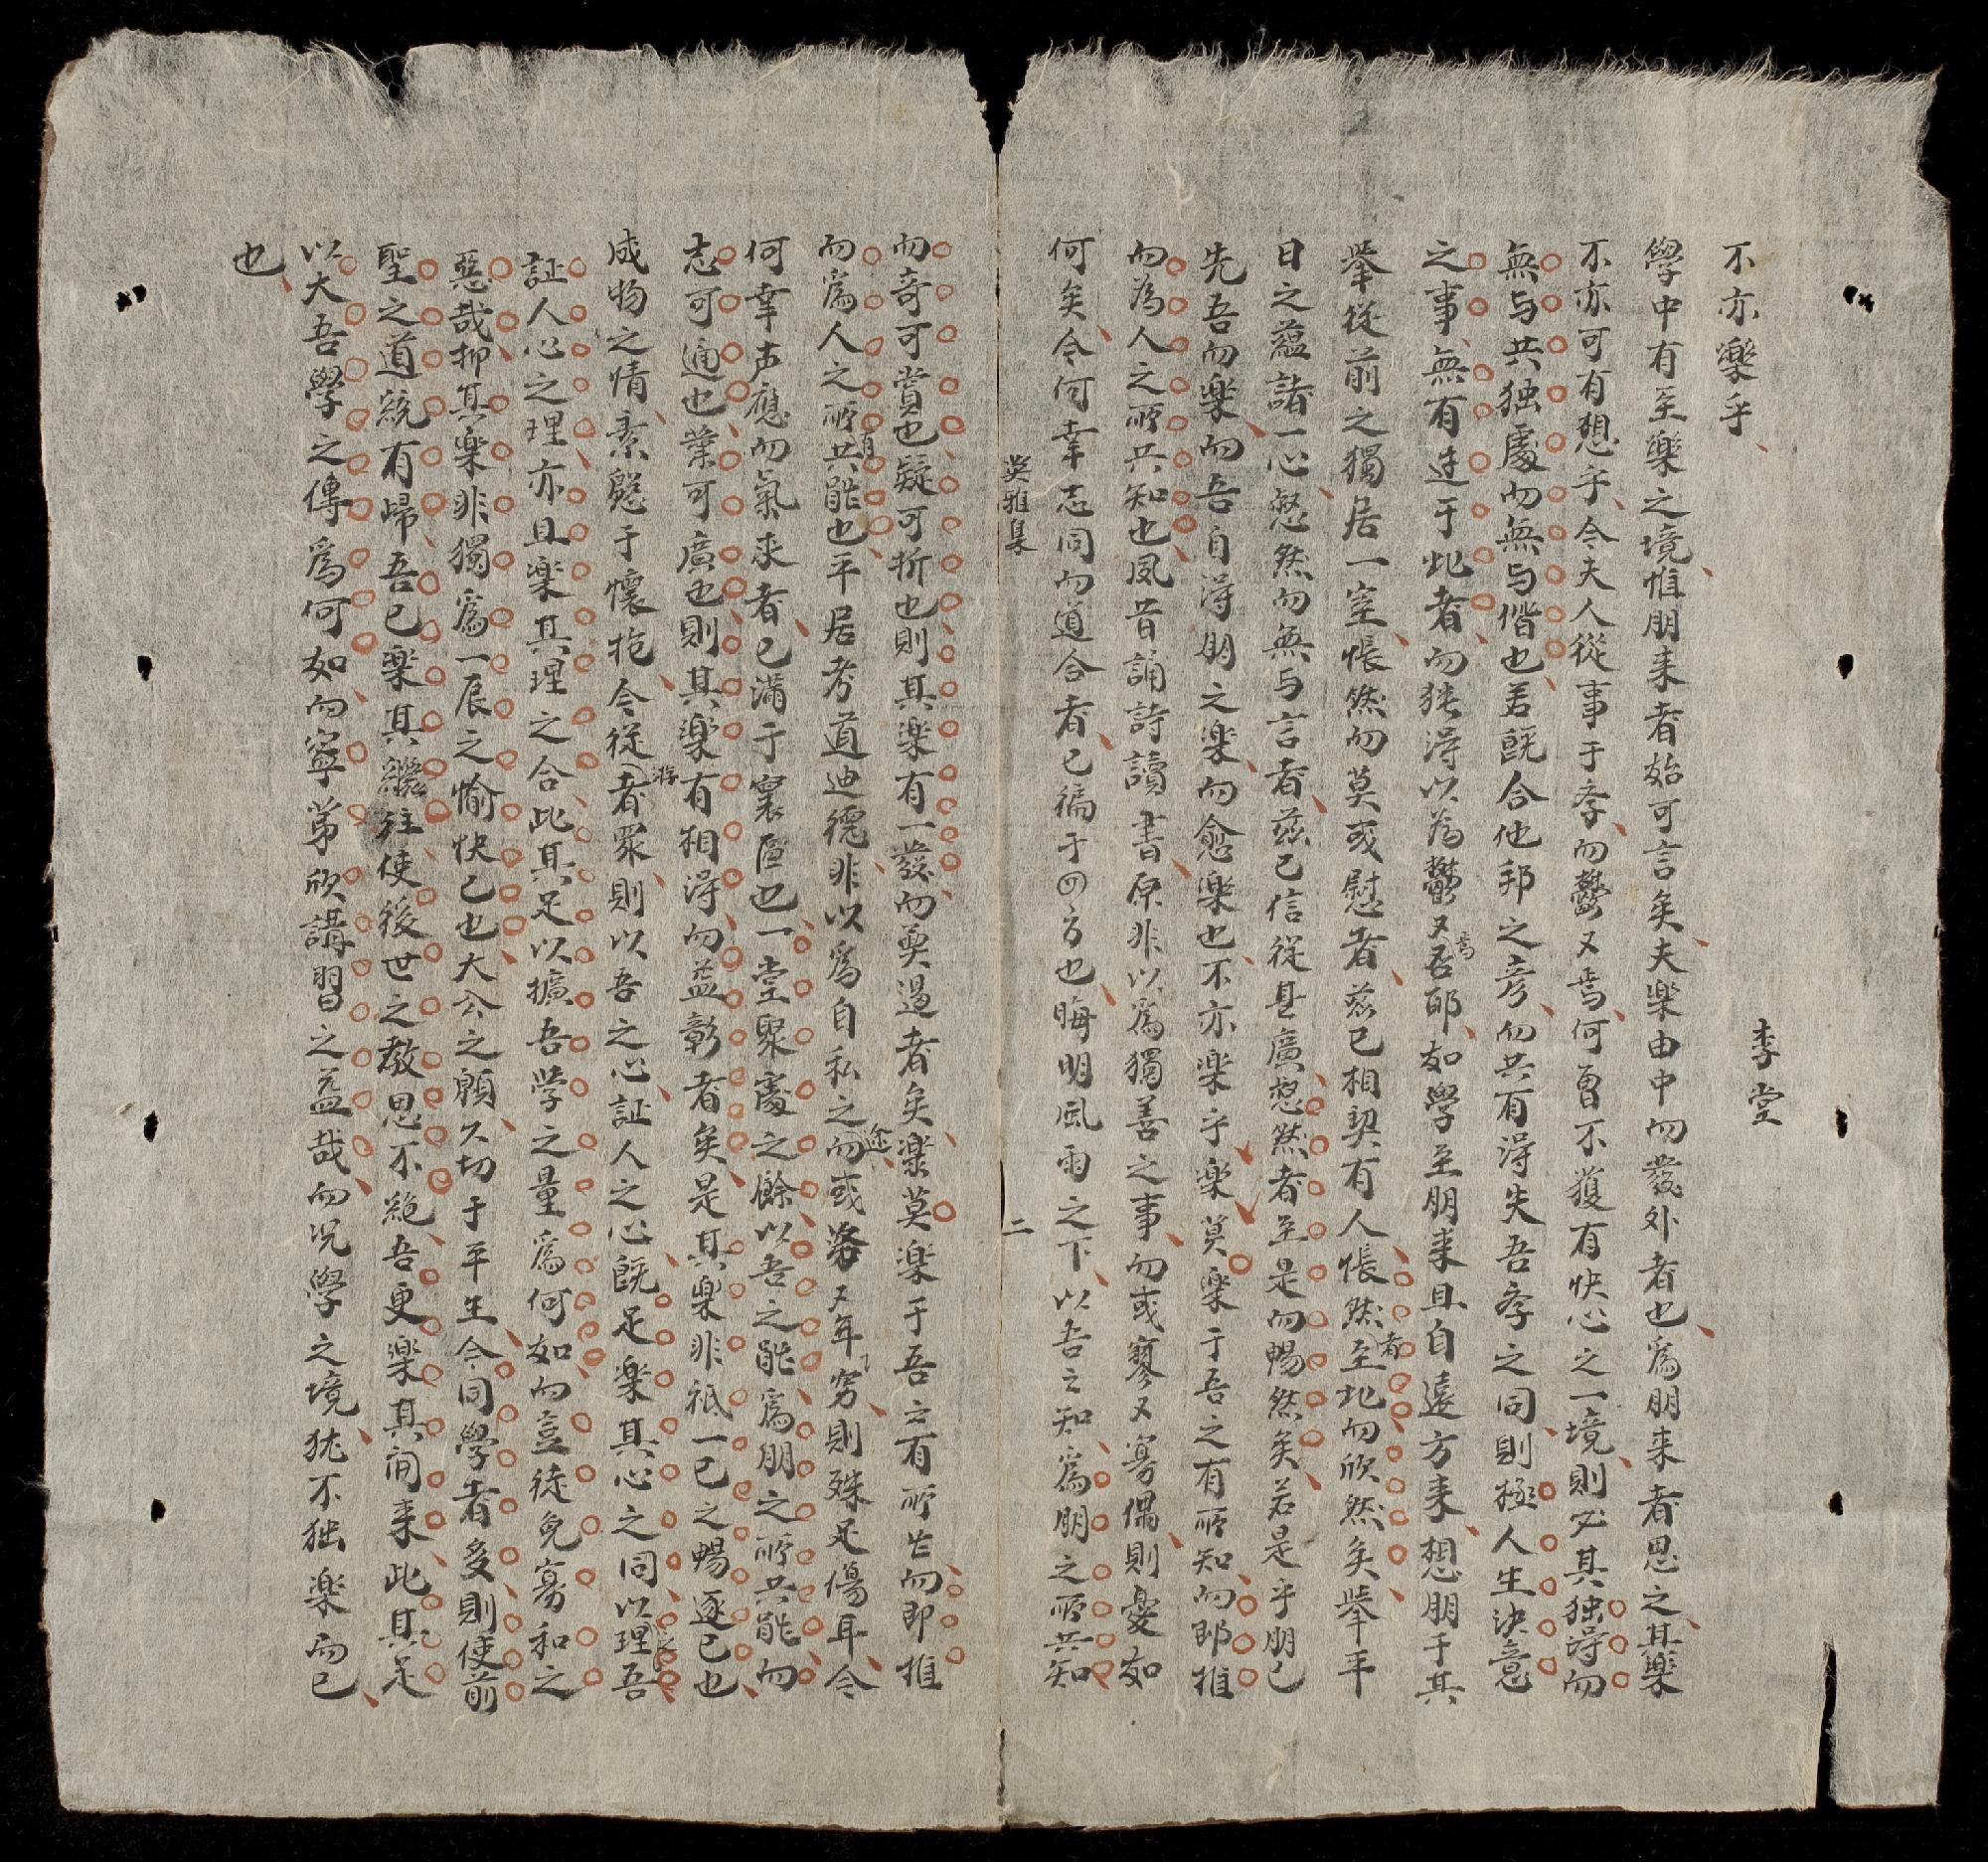 不亦樂乎
李堂
學中有至樂之境惟朋来者始可言矣夫楽由中而發外者也為朋来者思之其樂
不亦可有想乎今夫人從事于斈而鬱又焉何曾不獲有快心之一境則必其独得而
無与共独處而無与偕也若既合他邦之彦而共有得失吾斈之同則極人生決意
之事無有进于此者而独得以為鬱又焉吾耶如學至朋来且自遠方来想朋于其
舉從前之獨居一室悵然而莫或慰者茲已相契有人悵然者至此而欣然矣舉平
日之蘊諸一心愁然而無与言者茲已信從甚廣愁然者至是而暢然矣若是乎朋已
先吾而樂而吾自得朋之楽而愈楽也不亦楽乎楽莫楽于吾之有所知而即推
而為人之所共知也夙昔誦詩讀書原非以為獨善之事而或寥又寡偶則憂如
何矣今何幸志同而道合者已徧于四方也晦明風雨之下以吾之知為朋之所共知
英雅集
二
而奇可賞也疑可析也則其楽有一發而莫遏者矣楽莫楽于吾之有所能而即推
而為人之所共能也平居考道迪德非以為自私之途而或落又年窮則殊足傷耳今
何幸声應而氣求者已滿于寰區也一堂聚處之餘以吾之能為朋之所共能而
志可通也業可廣也則其樂有相得而益彰者矣是其樂非祇一己之暢遂已也
成物之情素慇于懷抱今從游者眾則以吾之心証人之心既足樂其心之同以理吾
証人心之理亦且楽其理之合此其足以擴吾学之量為何如而豈徒免寡和之
惡哉抑其楽非獨為一展之愉快已也大公之願久切于平生今同學者多則使前
聖之道統有歸吾已楽其繼往使後世之教思不絶吾更楽其開来此其足
以大吾學之傳為何如而寧第欣講習之益哉而况學之境犹不独楽而已
也